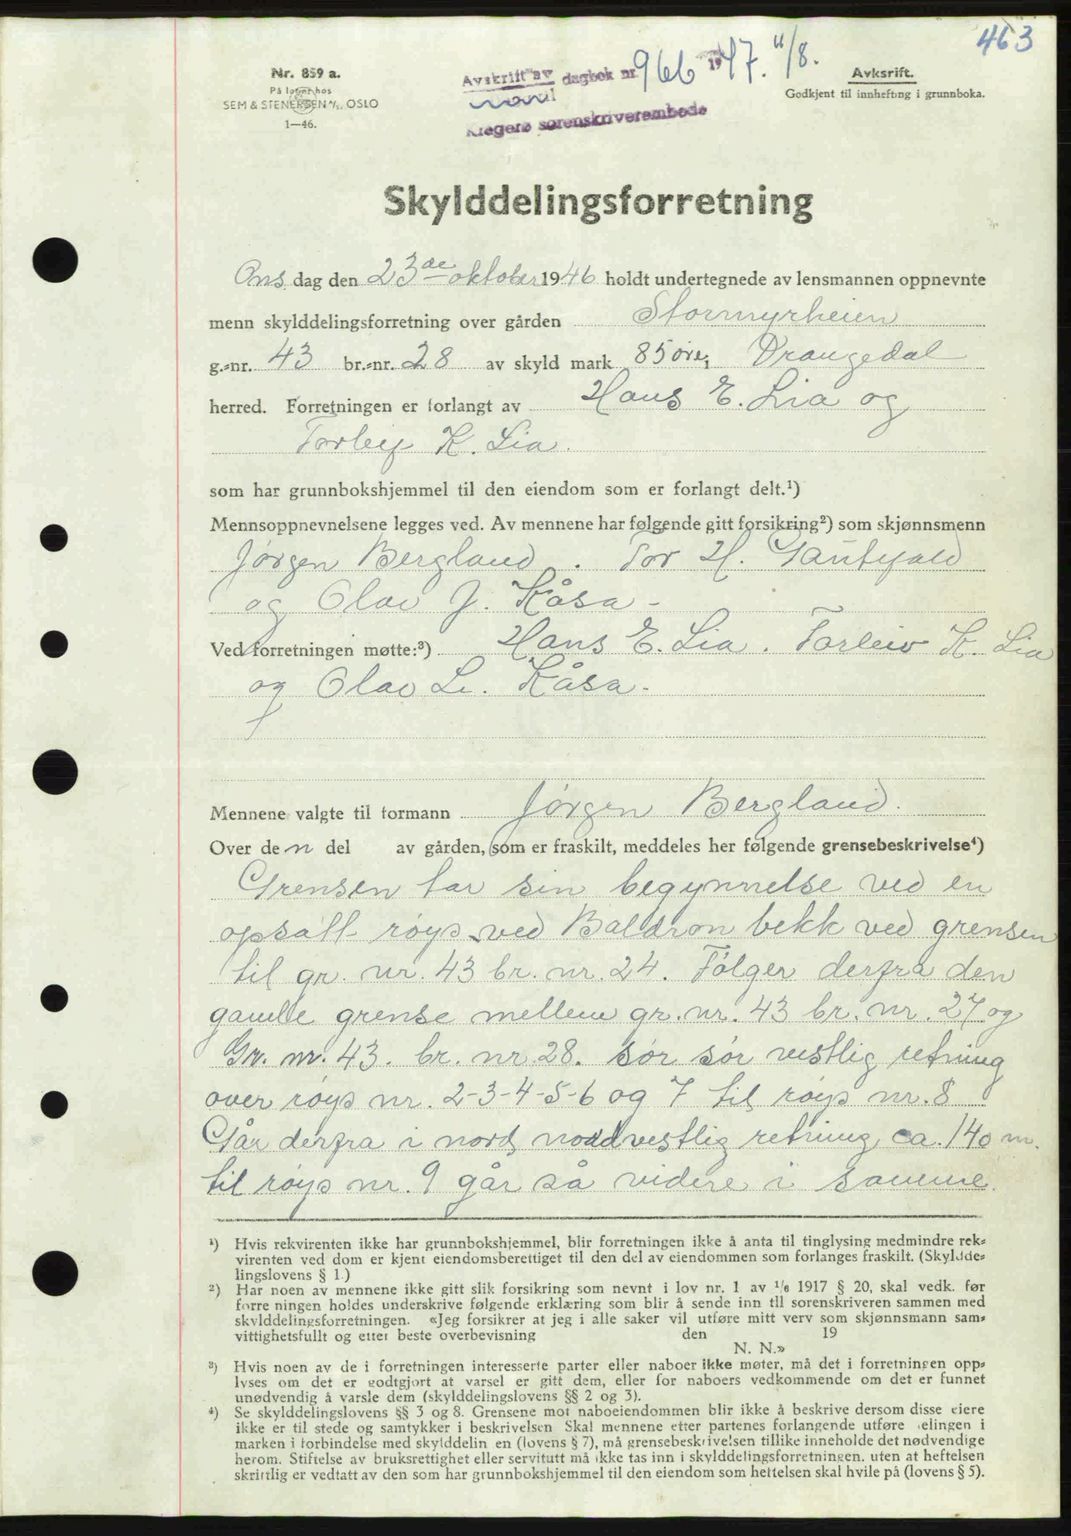 463
Nr. 859 a.
På lager hos
SEM & STENERSEN A/S. OSLO
1—46.
Avskrift av dagbok nr 966 1947. 11/8.
Kragerø sorenskriverembede
Avksrift.
Godkjent til innhefting i grunnboka.
Skylddelingsforretning
Ons dag den 23de oktober 1946 holdt undertegnede av lensmannen oppnevnte
menn skylddelingsforretning over gården Stormyrheien
g.-nr. 43 br.-nr. 28 av skyld mark 85 øre i Drangedal
herred. Forretningen er forlangt av Hans E. Lia og
Torleif K. Lia.
som har grunnbokshjemmel til den eiendom som er forlangt delt.¹)
Mennsoppnevnelsene legges ved. Av mennene har følgende gitt forsikring²) som skjønnsmenn
Jørgen Bergland. Tor H. Gautefald
og Olav J. Kåsa -
Ved forretningen møtte:³) Hans E. Lia. Torleiv K. Lia
og Olav L. Kåsa.
Mennene valgte til formann Jørgen Bergland.
Over den del av gården, som er fraskilt, meddeles her følgende grensebeskrivelse⁴)
Grensen tar sin begynnelse ved en
opsatt røys ved Baldron bekk ved grensen
til gr. nr. 43 br. nr. 24. Følger derfra den
gamle grense mellem gr. nr. 43 br. nr. 27 og
Gr. nr. 43. br. nr 28. sør sør vestlig retning
over røys nr. 2-3-4-5-6 og 7 til røys nr. 8
Går derfra i nord, nordvestlig retning ca. 140 m.
til røys nr. 9 går så videre i samme
¹) Hvis rekvirenten ikke har grunnbokshjemmel, blir forretningen ikke å anta til tinglysing medmindre rek-
virenten ved dom er kjent eiendomsberettiget til den del av eiendommen som forlanges fraskilt. (Skyldde-
lingslovens § 1.)
²) Har noen av mennene ikke gitt slik forsikring som nevnt i lov nr. 1 av 1/6 1917 § 20, skal vedk. før
forretningen holdes underskrive følgende erklæring som blir å sende inn til sorenskriveren sammen med
skylddelingsforretningen. «Jeg forsikrer at jeg i alle saker vil utføre mitt verv som skjønnsmann sam-
vittighetsfullt og etter beste overbevisning den 19
N. N.»
³) Hvis noen av de i forretningen interesserte parter eller naboer ikke møter, må det i forretningen opp-
lyses om det er godtgjort at varsel er gitt dem, eller for naboers vedkommende om det er funnet
unødvendig å varsle dem (skylddelingslovens §§ 2 og 3).
⁴) Se skylddelingslovens §§ 3 og 8. Grensene mot naboeiendommen blir ikke å beskrive dersom disse eiere
ikke er til stede og samtykker i beskrivelsen Skal mennene etter partenes forlangende utføre delingen i
marken i forbindelse med skylddelingen (lovens § 7), må grensebeskrivelsen tillike inneholde det nødvendige
herom. Stiftelse av bruksrettighet eller servitutt må ikke tas inn i skylddelingsforretningen, uten at heftelsen
skriftlig er vedtatt av den som har grunnbokshjemmel til den eiendom som heftelsen skal hvile på (lovens § 5).